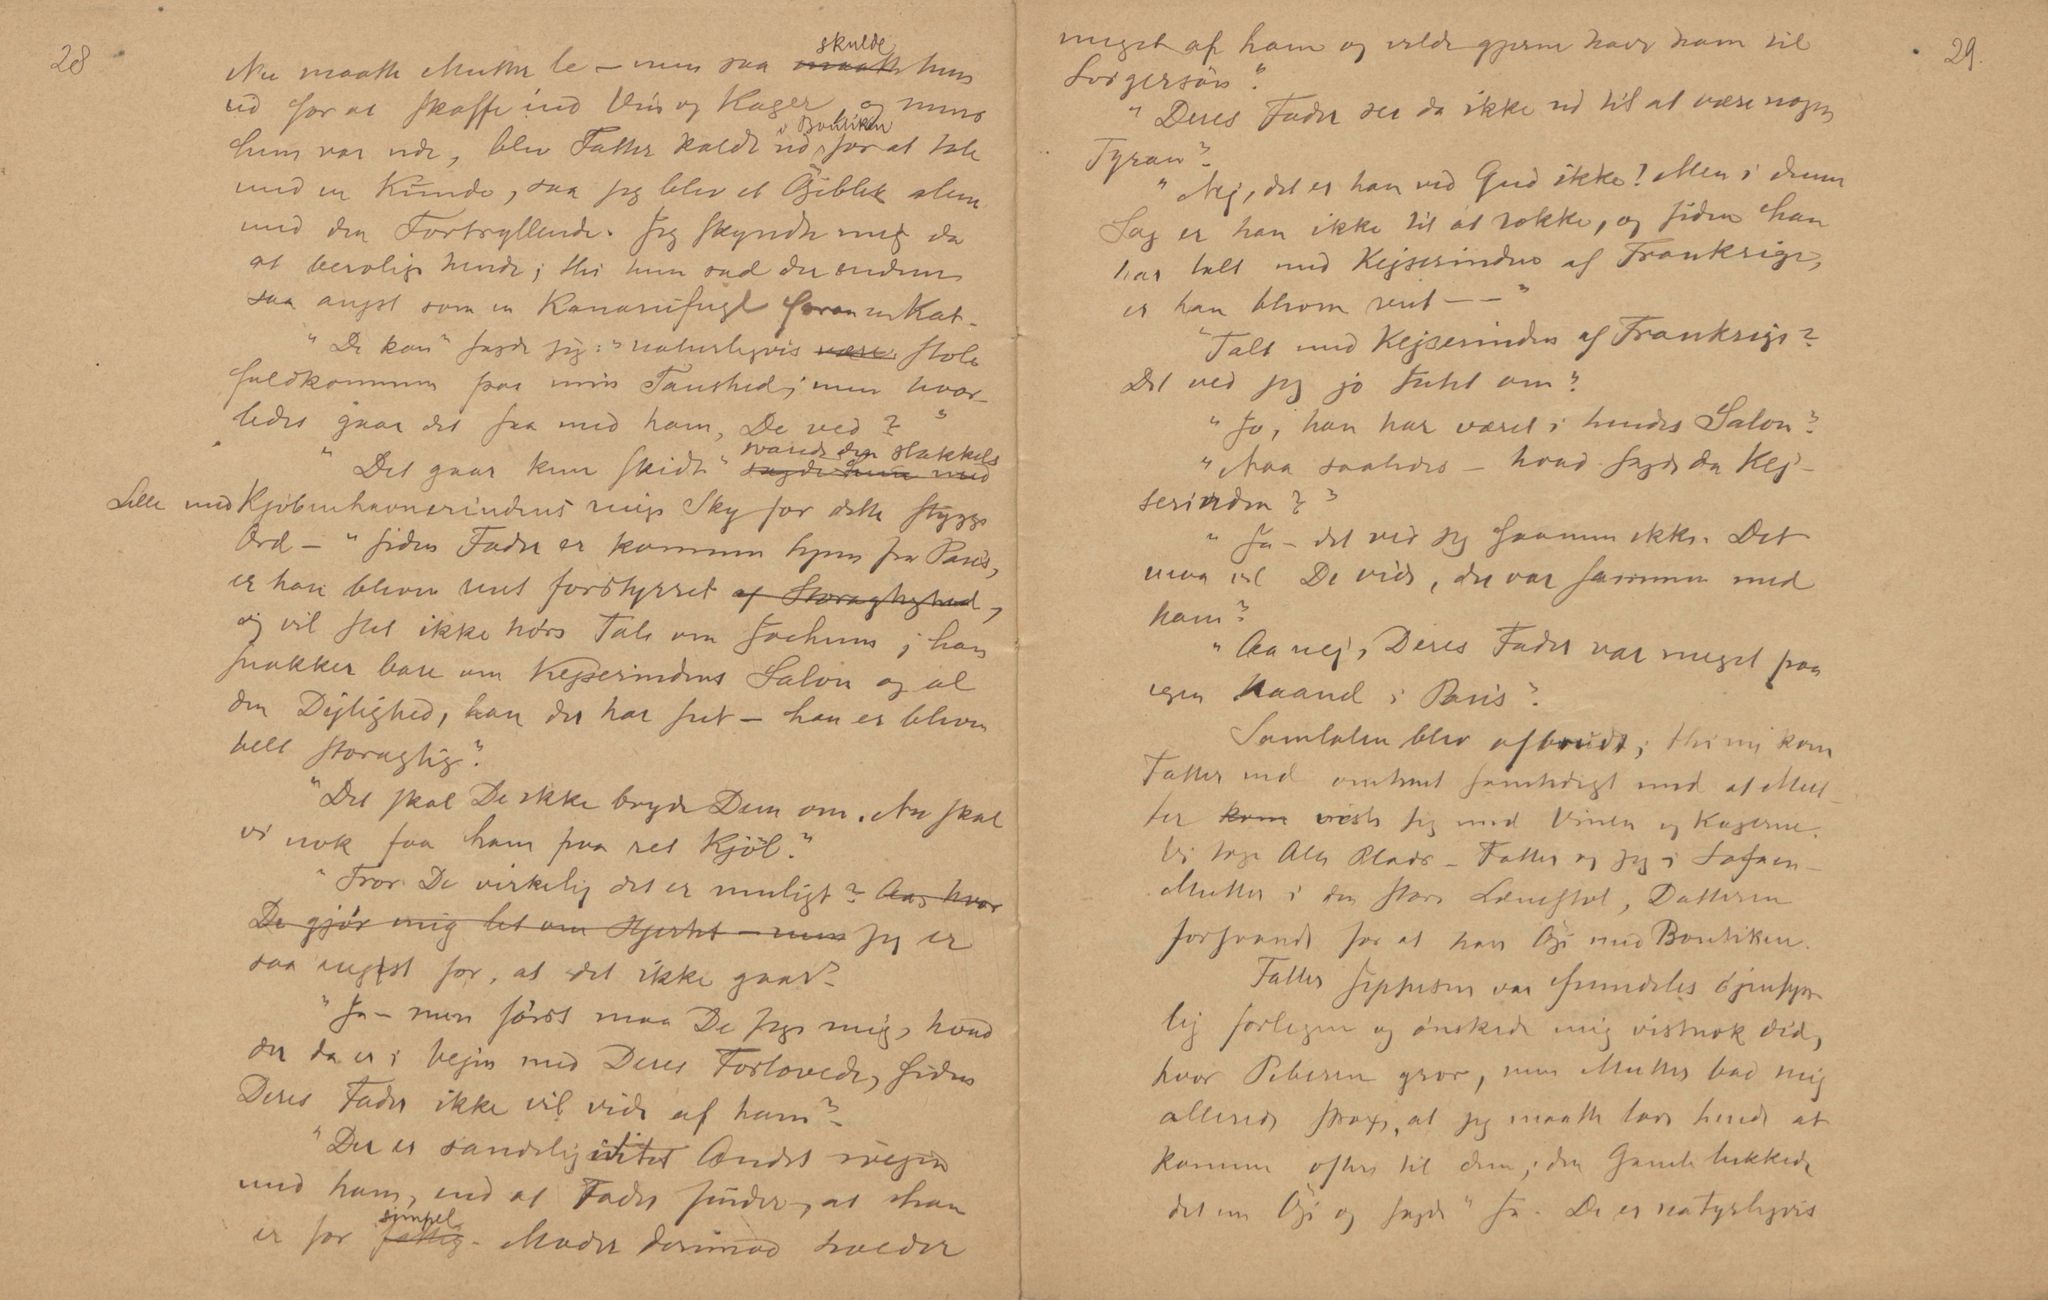 28
Nu maatte Mutter le – men saa maatte skulde hun
ud for at skaffe ind Vin og Kager, og mens
hun var ude, blev Fatter kaldt ud i Boutiken for at tale
med en Kunde, saa jeg blev et Øieblik alene
med den Fortryllende. Jeg skyndte mig da
at berolige hende; thi hun sad der endnu
saa angst som en Kanariefugl foran en Kat.
"De kan" sagde jeg: "naturligvis være stole
fuldkommen paa min Taushed; men hvor-
ledes gaar det saa med ham, De ved?"
"Det gaar kun skidt" sagde hun med svarede den stakkels
Lille med Kjøbenhavnerindens ringe Sky for dette stygge
Ord – "siden Fader er kommen hjem fra Paris,
er han bleven rent forstyrret af Storagtighed,
og vil slet ikke høre Tale om Jochum; han
snakker bare om Kejserindens Salon og al
den Dejlighed, han der har set – han er bleven
helt storagtig".
"Det skal De ikke bryde Dem om. Nu skal
vi nok faa ham paa ret Kjøl."
"Tror De virkelig det er muligt? Aa, hvor
De gjør mig let om Hjertet – men jeg er
saa angst for, at det ikke gaar"
"Ja – men først maa De sige mig, hvad
der da er i Vejen med Deres Forlovede, siden
Deres Fader ikke vil vide af ham"
"Der er sandelig intet Andet ivejen
med ham, end at Fader finder, at han
er for fattig simpel. Moder derimod holder
29.
meget af ham og vilde gjerne have ham til
Svigersøn".
"Deres Fader ser da ikke ud til at være nogen
Tyran"
"Nej, det er han ved Gud ikke! Men i denne
Sag er han ikke til at rokke, og siden han
har talt med Kejserinden af Frankrige,
er han bleven rent – –"
"Talt med Kejserinden af Frankrige?
Det ved jeg jo Intet om"
"Jo, han har været i hendes Salon"
"Naa saaledes – hvad sagde da Kej-
serinden?"
"Ja – det ved jeg saamæn ikke. Det
maa vel De vide, der var sammen med
ham"
"Aa nej, Deres Fader var meget paa
egen Haand i Paris"
Samtalen blev afbrudt; thi nu kom
Fatter ind omtrent samtidigt med at Mut-
ter kom viste sig med Vinen og Kagerne.
Vi tog Alle Plads – Fatter og jeg i Sofaen –
Mutter i den store Lænestol, Datteren
forsvandt for at have Øje med Boutiken.
Fatter Jeppesen var fremdeles øjensyn-
lig forlegen og ønskede mig vistnok did,
hvor Peberen gror, men Mutter bad mig
allerede strax, at jeg maatte love hende at
komme oftere til dem; den Gamle lukkede
det ene Øje og sagde "Ja. De er naturligvis